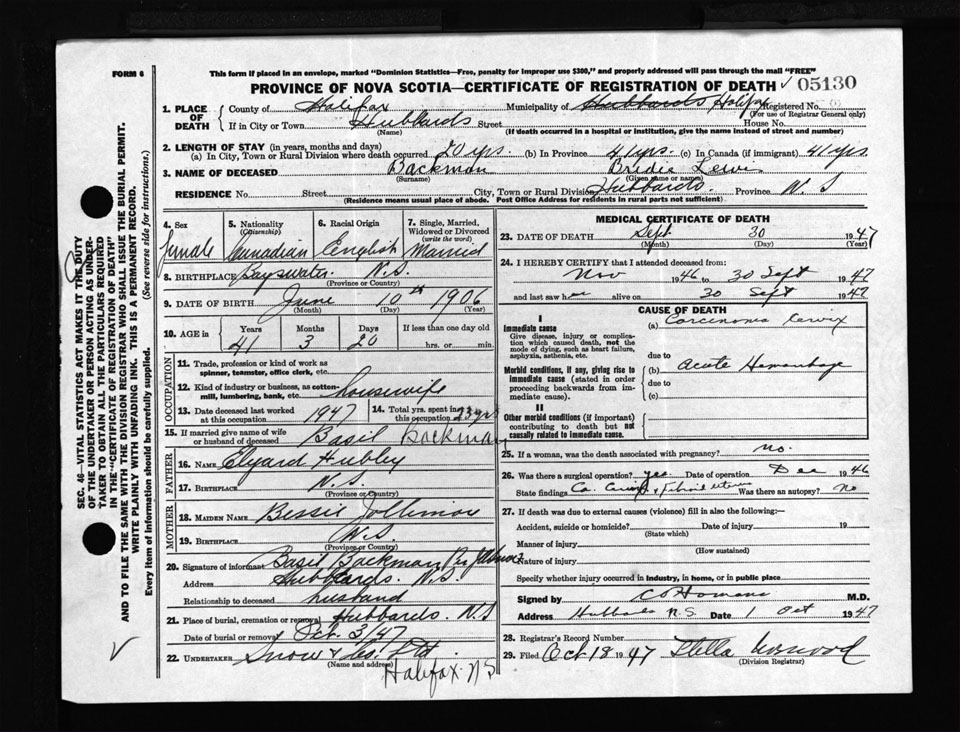 FORM 6
This form if placed in an envelope, marked "Dominion Statistics—Free, penalty for improper use $300," and properly addressed will pass through the mail "FREE"
PROVINCE OF NOVA SCOTIA—CERTIFICATE OF REGISTRATION OF DEATH ✓ 05130
1. PLACE OF DEATH
County of Halifax Municipality of Hubbards, Halifax Registered No.
(For use of Registrar General only)
If in City or Town Hubbards Street House No.
(Name) (If death occurred in a hospital or institution, give the name instead of street and number)
2. LENGTH OF STAY (in years, months and days)
(a) In City, Town or Rural Division where death occurred 20 yrs. (b) In Province 41 yrs. (c) In Canada (if immigrant) 41 yrs
3. NAME OF DECEASED Backman Bridie
(Surname) (Given name or names)
RESIDENCE No. Street City, Town or Rural Division Hubbards. Province N S
(Residence means usual place of abode. Post Office Address for residents in rural parts not sufficient)
4. Sex 5. Nationality (Citizenship) 6. Racial Origin 7. Single, Married, Widowed or Divorced (write the word)
female Canadian English Married
8. BIRTHPLACE Bayswater N.S.
(Province or Country)
9. DATE OF BIRTH June 10th 1906
(Month) (Day) (Year)
10. AGE in Years Months Days If less than one day old
41 3 20 hrs. or min.
OCCUPATION
11. Trade, profession or kind of work as spinner, teamster, office clerk, etc.
12. Kind of industry or business, as cotton-mill, lumbering, bank, etc. housewife
13. Date deceased last worked at this occupation 1947 14. Total yrs. spent in this occupation 23 yrs
15. If married give name of wife or husband of deceased Basil Backman
FATHER
16. NAME Elyard Hubley
17. BIRTHPLACE N.S.
(Province or Country)
MOTHER
18. MAIDEN NAME Bessie Jollimore
19. BIRTHPLACE N.S.
(Province or Country)
20. Signature of informant Basil Backman
Address Hubbards. N.S.
Relationship to deceased husband
21. Place of burial, cremation or removal Hubbards. N.S
Date of burial or removal Oct. 3/47
22. UNDERTAKER Snow & Co. Ltd.
(Name and address)
Halifax N S
MEDICAL CERTIFICATE OF DEATH
23. DATE OF DEATH Sept 30 1947
(Month) (Day) (Year)
24. I HEREBY CERTIFY that I attended deceased from:
Nov 1946 to 30 Sept 1947
and last saw her alive on 30 Sept 1947
CAUSE OF DEATH
I
Immediate cause
Give disease, injury or complication which caused death, not the mode of dying, such as heart failure, asphyxia, asthenia, etc.
(a) Carcinoma Cervix
due to
Morbid conditions, if any, giving rise to immediate cause (stated in order proceeding backwards from immediate cause).
(b) Acute Hemorrhage
due to
(c)
II
Other morbid conditions (if important) contributing to death but not causally related to immediate cause.
25. If a woman, was the death associated with pregnancy? no.
26. Was there a surgical operation? yes. Date of operation Dec 1946
State findings Ca. Cervix & Fibroid uterus Was there an autopsy? No
27. If death was due to external causes (violence) fill in also the following:—
Accident, suicide or homicide? Date of injury 19
(State which)
Manner of injury
(How sustained)
Nature of injury
Specify whether injury occurred in industry, in home, or in public place
Signed by M.D.
Address Hubbards N.S. Date 1 Oct 1947
28. Registrar's Record Number
29. Filed Oct 18 1947 Stella Norwood
(Division Registrar)
SEC. 46—VITAL STATISTICS ACT MAKES IT THE DUTY
OF THE UNDERTAKER OR PERSON ACTING AS UNDER-
TAKER TO OBTAIN ALL THE PARTICULARS REQUIRED
IN THE "CERTIFICATE OF REGISTRATION OF DEATH"
AND TO FILE THE SAME WITH THE DIVISION REGISTRAR WHO SHALL ISSUE THE BURIAL PERMIT.
WRITE PLAINLY WITH UNFADING INK. THIS IS A PERMANENT RECORD.
Every item of information should be carefully supplied. (See reverse side for instructions.)